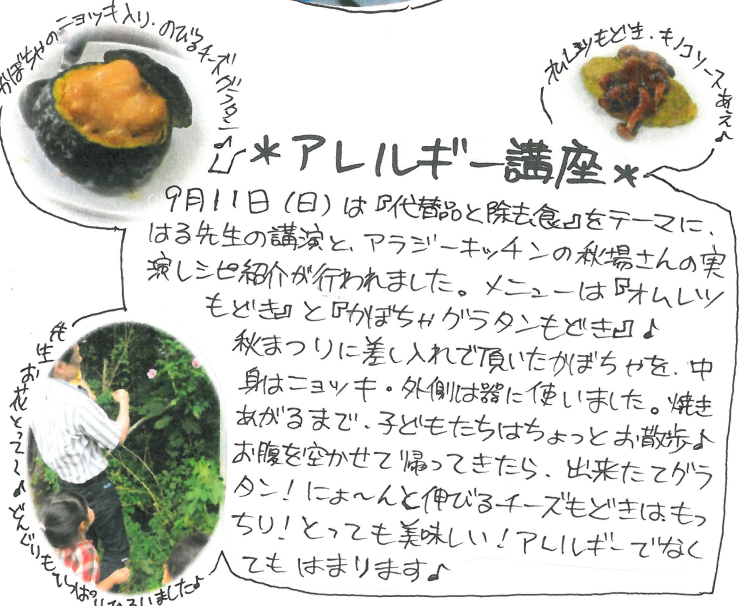 かぼちゃのニョッキ入り・のびるチーズグラタン♪
オムレツもどき・キノコソースあえ♪
＊アレルギー講座＊
9月11日（日）は『代替品と除去食』をテーマに、
はる先生の講演と、アラジーキッチンの秋場さんの実
演レシピ紹介が行われました。メニューは『オムレツ
もどき』と『かぼちゃグラタンもどき』♪
秋まつりに差し入れで頂いたかぼちゃを、中
身はニョッキ・外側は器に使いました。焼き
あがるまで、子どもたちはちょっとお散歩♪
お腹を空かせて帰ってきたら、出来たてグラ
タン！にょ〜んと伸びるチーズもどきは、もっ
ちり！とっても美味しい！アレルギーでなく
てもはまります♪
先生お花とって〜♪どんぐりもいっぱいひろいました♪